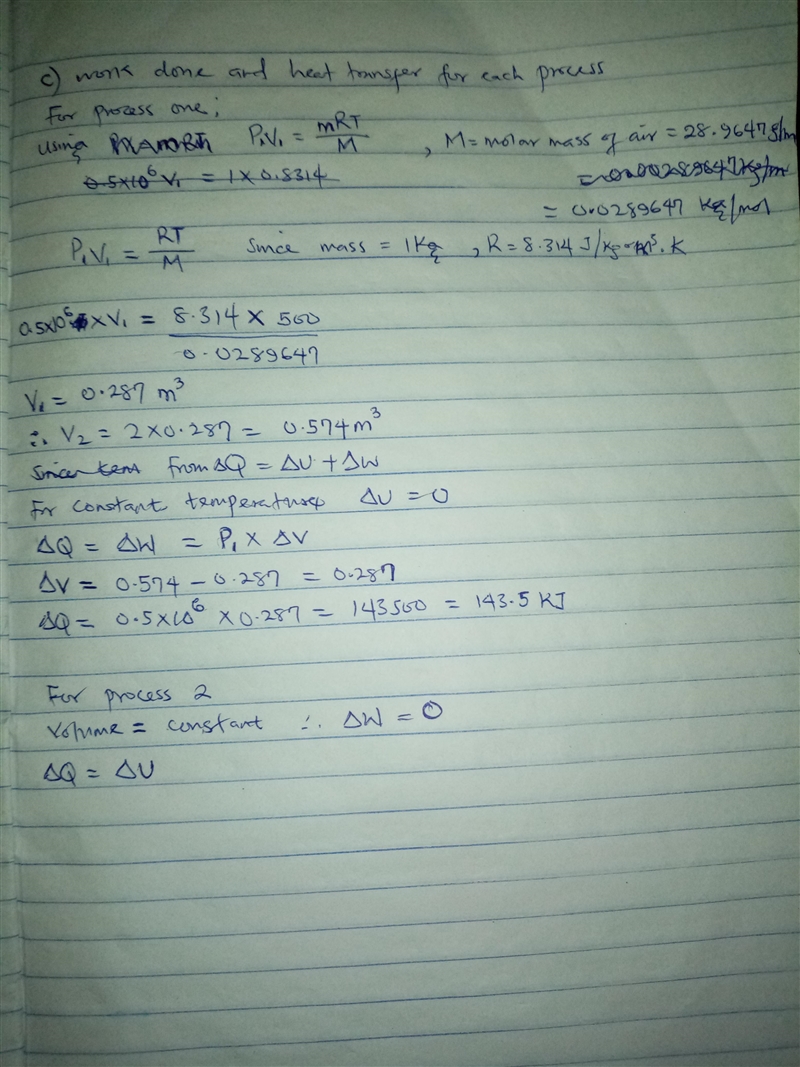 c) work done and heat transfer for each process
For process one;
using P₁V₁ = mRT/M , M = molar mass of air = 28.9647 g/m
0.5×10⁶ V₁ = 1 × 0.8314
= 0.0289647 Kg/mol
P₁V₁ = RT/M Since mass = 1Kg , R = 8.314 J/ . K
0.5×10⁶ × V₁ = 8.314 × 500 / 0.0289647
V₁ = 0.287 m³
∴ V₂ = 2×0.287 = 0.574m³
From ΔQ = ΔU + ΔW
For constant temperature ΔU = 0
ΔQ = ΔW = P₁ × ΔV
ΔV = 0.574 – 0.287 = 0.287
ΔQ = 0.5×10⁶ × 0.287 = 143500 = 143.5 KJ
For process 2
Volume = constant ∴ ΔW = 0
ΔQ = ΔU